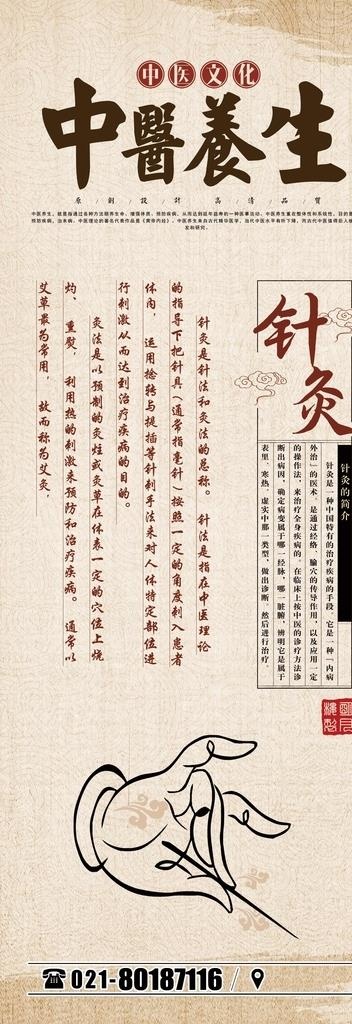 中医文化
中醫養生
原/創/設/計/高/清/品/質
中医养生，就是指通过各种方法颐养生命、增强体质、预防疾病，从而达到延年益寿的一种医事活动。中医养生重在整体性和系统性，目的是
预防疾病，治未病。中医理论的著名代表作品是《黄帝内经》。中医养生来自古代精华医学，当代中医水平有所下降，而古代中医值得后人
发和研究。
针灸
针灸的简介
针灸是一种中国特有的治疗疾病的手段。它是一种「内病
外治」的医术。是通过经络、腧穴的传导作用，以及应用一定
的操作法，来治疗全身疾病的。在临床上按中医的诊疗方法诊
断出病因，确定病变属于哪一经脉，哪一脏腑，辨明它是属于
表里、寒热、虚实中那一类型，做出诊断。然后进行治疗。
针灸是针法和灸法的总称。针法是指在中医理论
的指导下把针具（通常指毫针）按照一定的角度刺入患者
体内，运用捻转与提插等针刺手法来对人体特定部位进
行刺激从而达到治疗疾病的目的。
灸法是以预制的灸炷或灸草在体表一定的穴位上烧
灼、熏熨，利用热的刺激来预防和治疗疾病。通常以
艾草最为常用，故而称为艾灸。
021-80187116 /